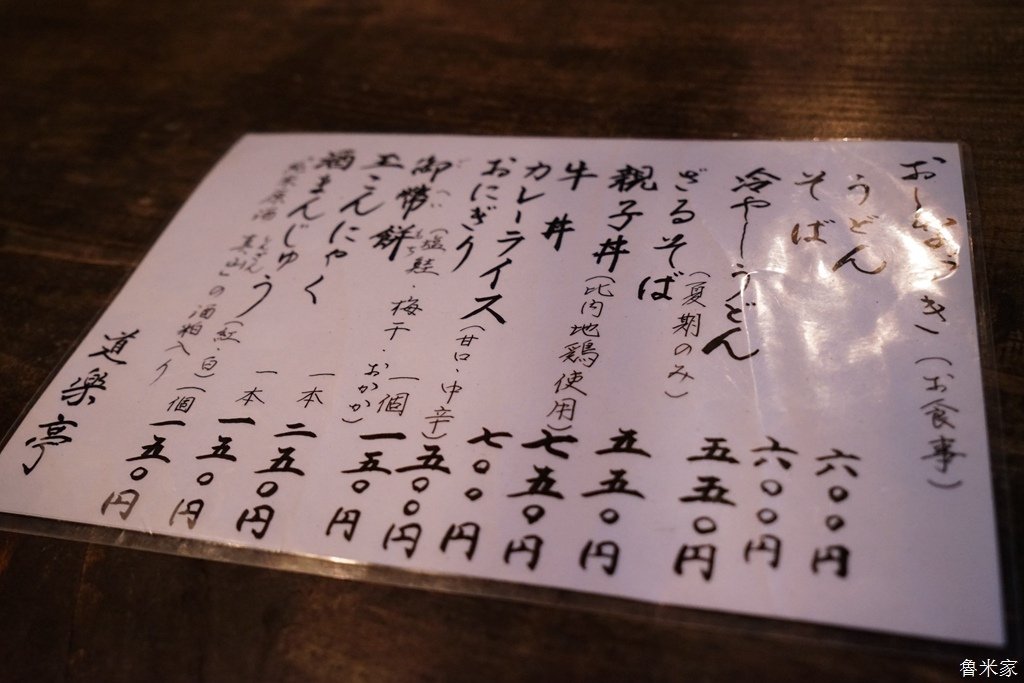 おしながき(お食事)
うどん 六〇〇円
そば 六〇〇円
冷やしうどん 五五〇円
ざるそば(夏期のみ) 五五〇円
親子丼(比内地鶏使用) 七五〇円
牛丼 七〇〇円
カレーライス(甘口・中辛) 五〇〇円
おにぎり(塩鮭・梅干・おかか) 一個 一五〇円
御幣餅 一本 二五〇円
玉こんにゃく 一本 一五〇円
酒まんじゅう(紅・白) 一個 一五〇円
純米原酒 真山の酒粕入り
道楽亭
魯米家